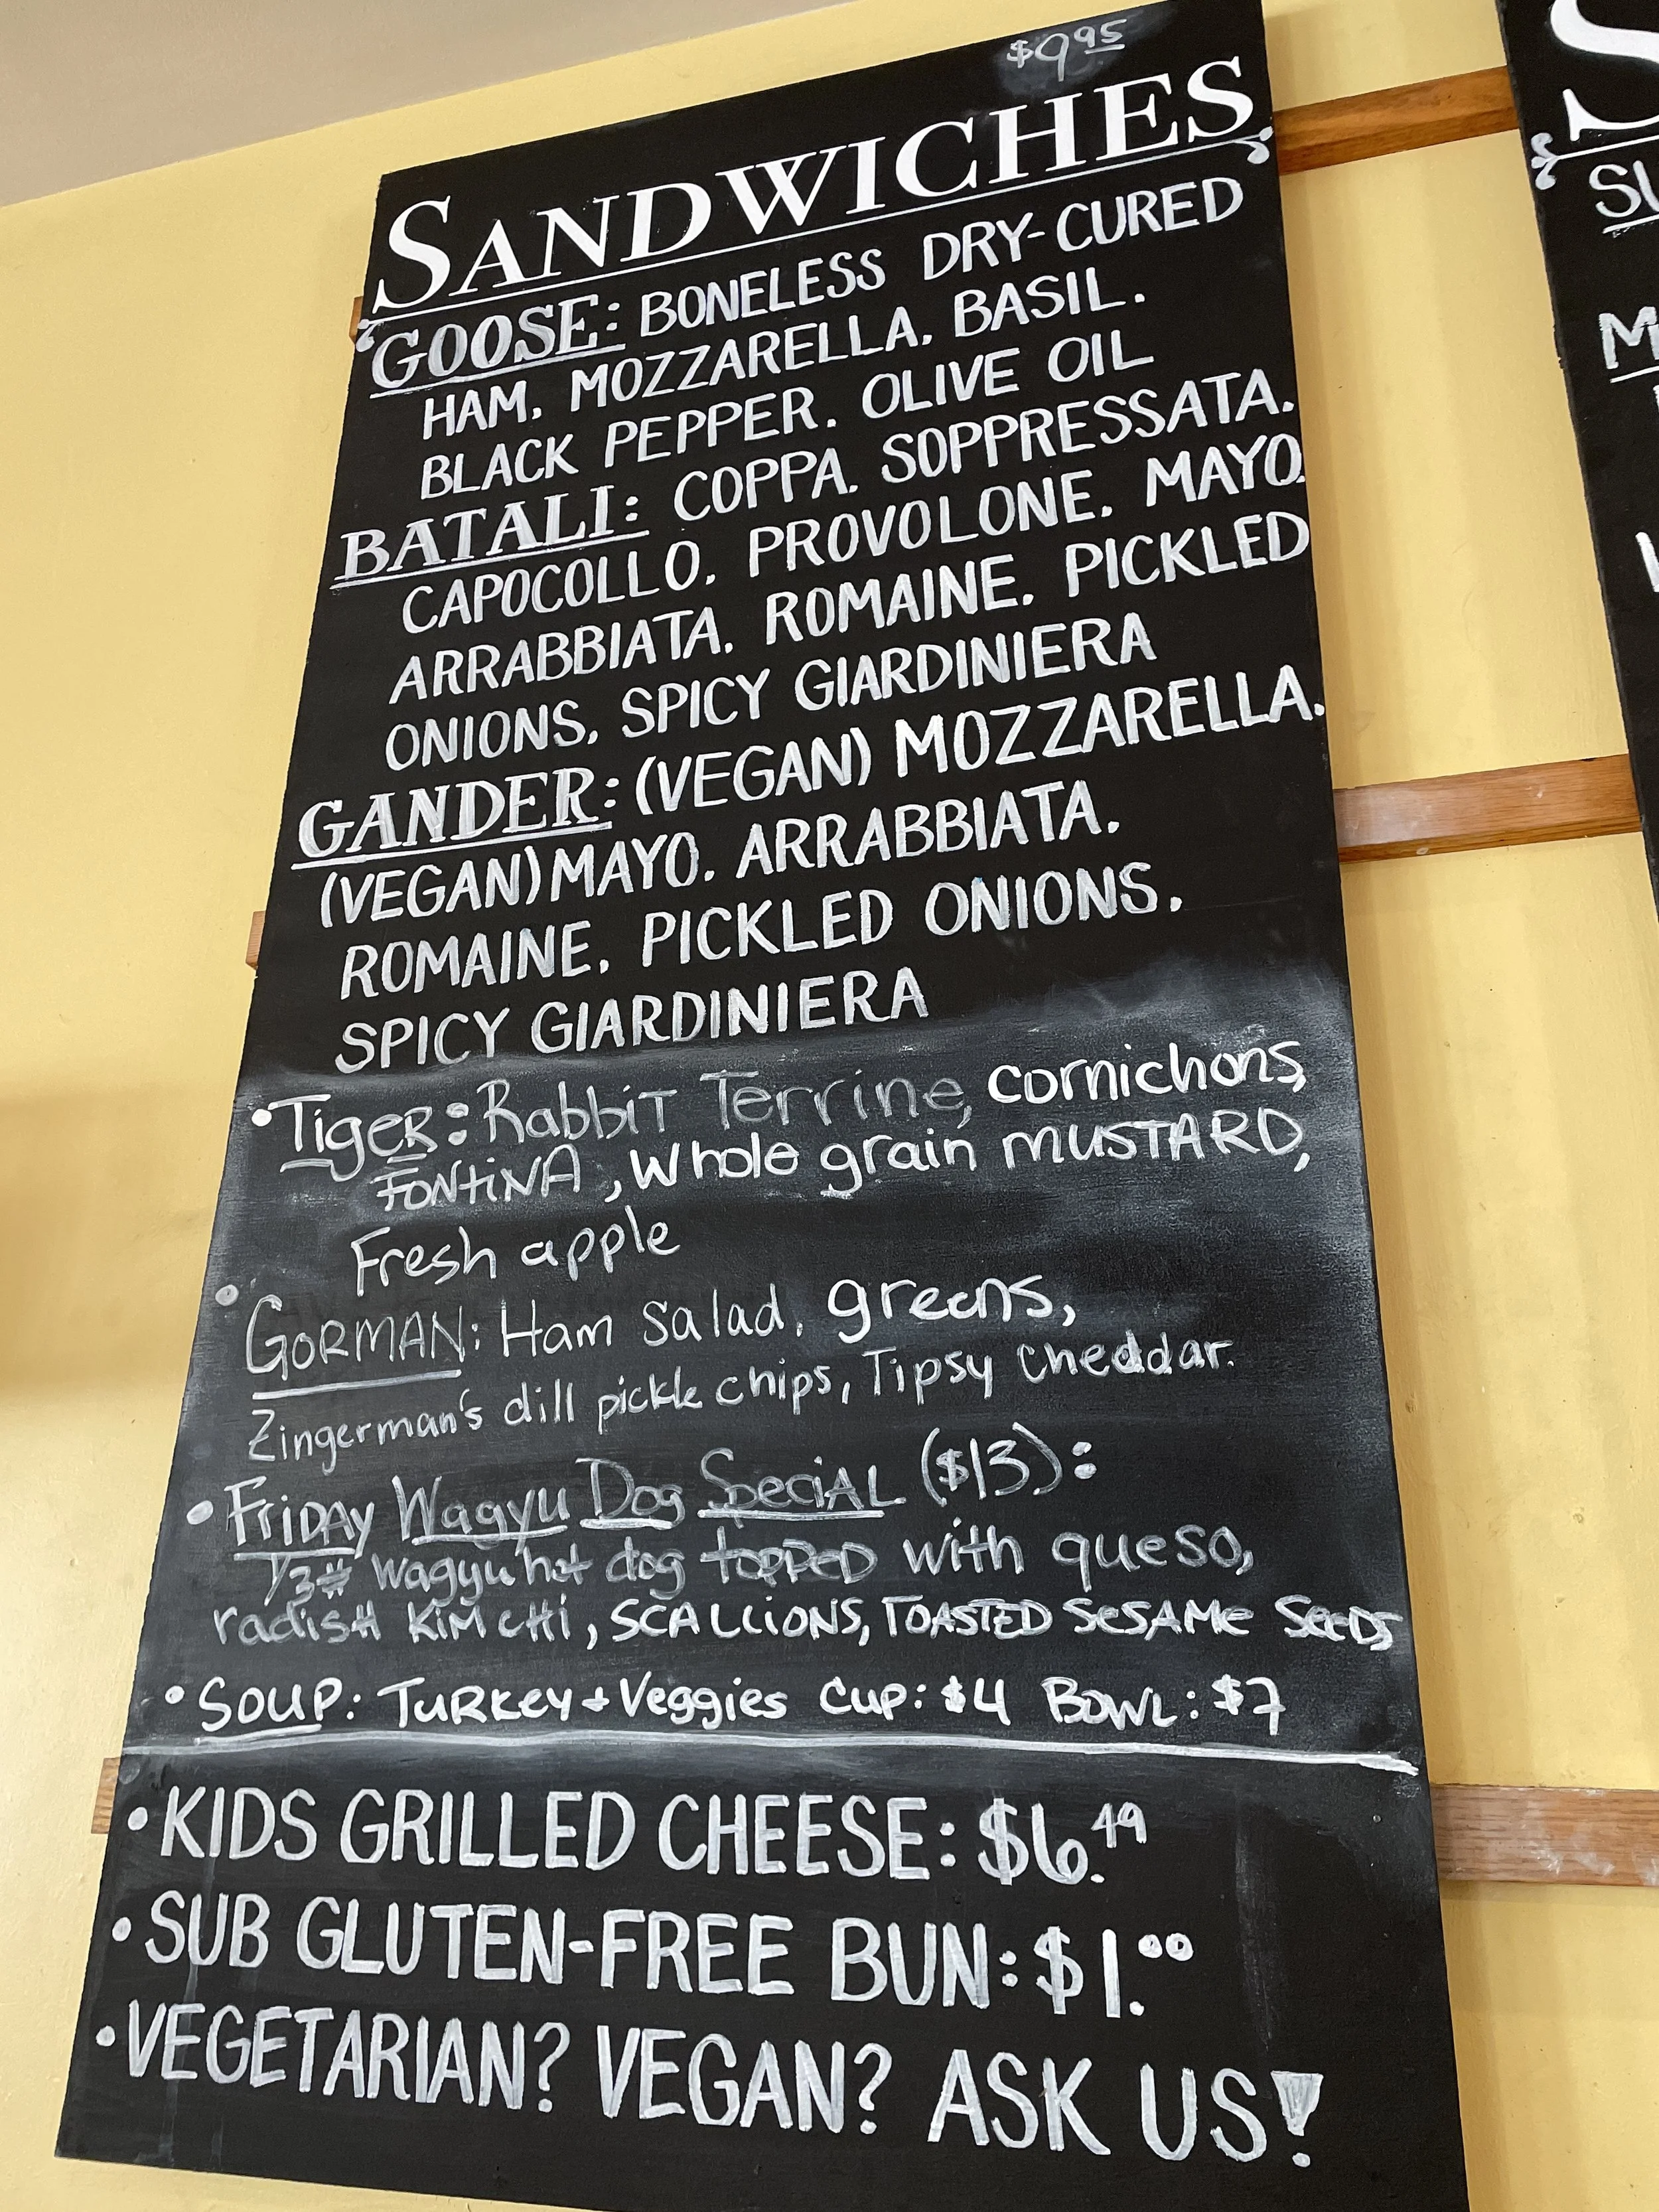 $9.95
SANDWICHES
GOOSE: BONELESS DRY-CURED
HAM. MOZZARELLA. BASIL.
BLACK PEPPER. OLIVE OIL
BATALI: COPPA. SOPPRESSATA.
CAPOCOLLO. PROVOLONE. MAYO.
ARRABBIATA. ROMAINE. PICKLED
ONIONS. SPICY GIARDINIERA
GANDER: (VEGAN) MOZZARELLA.
(VEGAN) MAYO. ARRABBIATA.
ROMAINE. PICKLED ONIONS.
SPICY GIARDINIERA
• TIGER: Rabbit Terrine, cornichons,
FONTINA, Whole grain MUSTARD,
Fresh apple
• GORMAN: Ham Salad, greens,
Zingerman's dill pickle chips, Tipsy Cheddar.
• FRIDAY Wagyu Dog SpeciAL ($13):
1/3# wagyu hot dog TOPPED with queso,
radisH KiMcHi, SCALLiONS, TOASTED SeSAMe SeeDS
• SOUP: TURKey + Veggies Cup: $4 BOWL: $7
• KIDS GRILLED CHEESE: $6.49
• SUB GLUTEN-FREE BUN: $1.00
• VEGETARIAN? VEGAN? ASK US!
S
SU
M